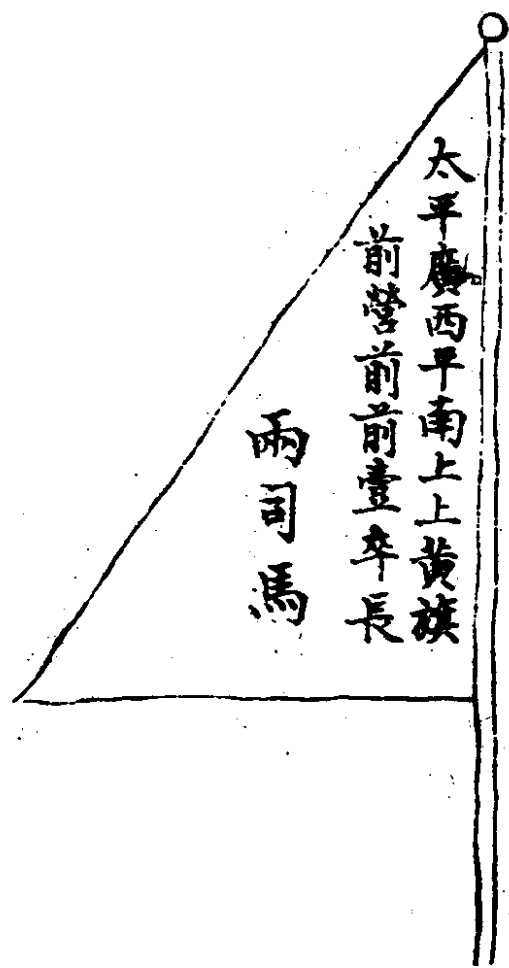 太平廣西平南上上黃旗
前營前前前壹卒長
兩司馬